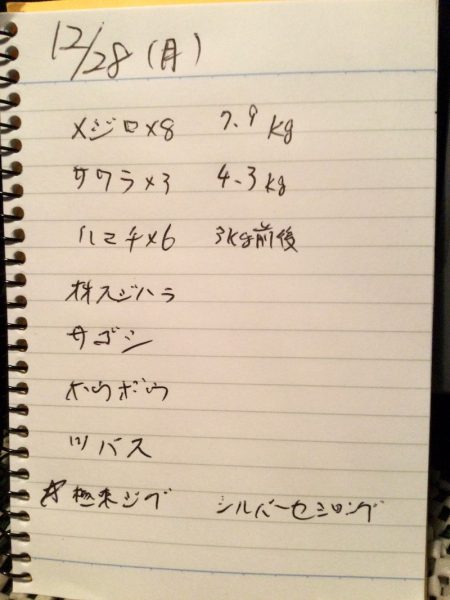 12/28 (月)
メジロ×8 7.9kg
サワラ×3 4.3kg
ハマチ×6 3kg前後
スジハラ
サゴシ
ホウボウ
ツバス
☆ ジグ シルバーセミロング